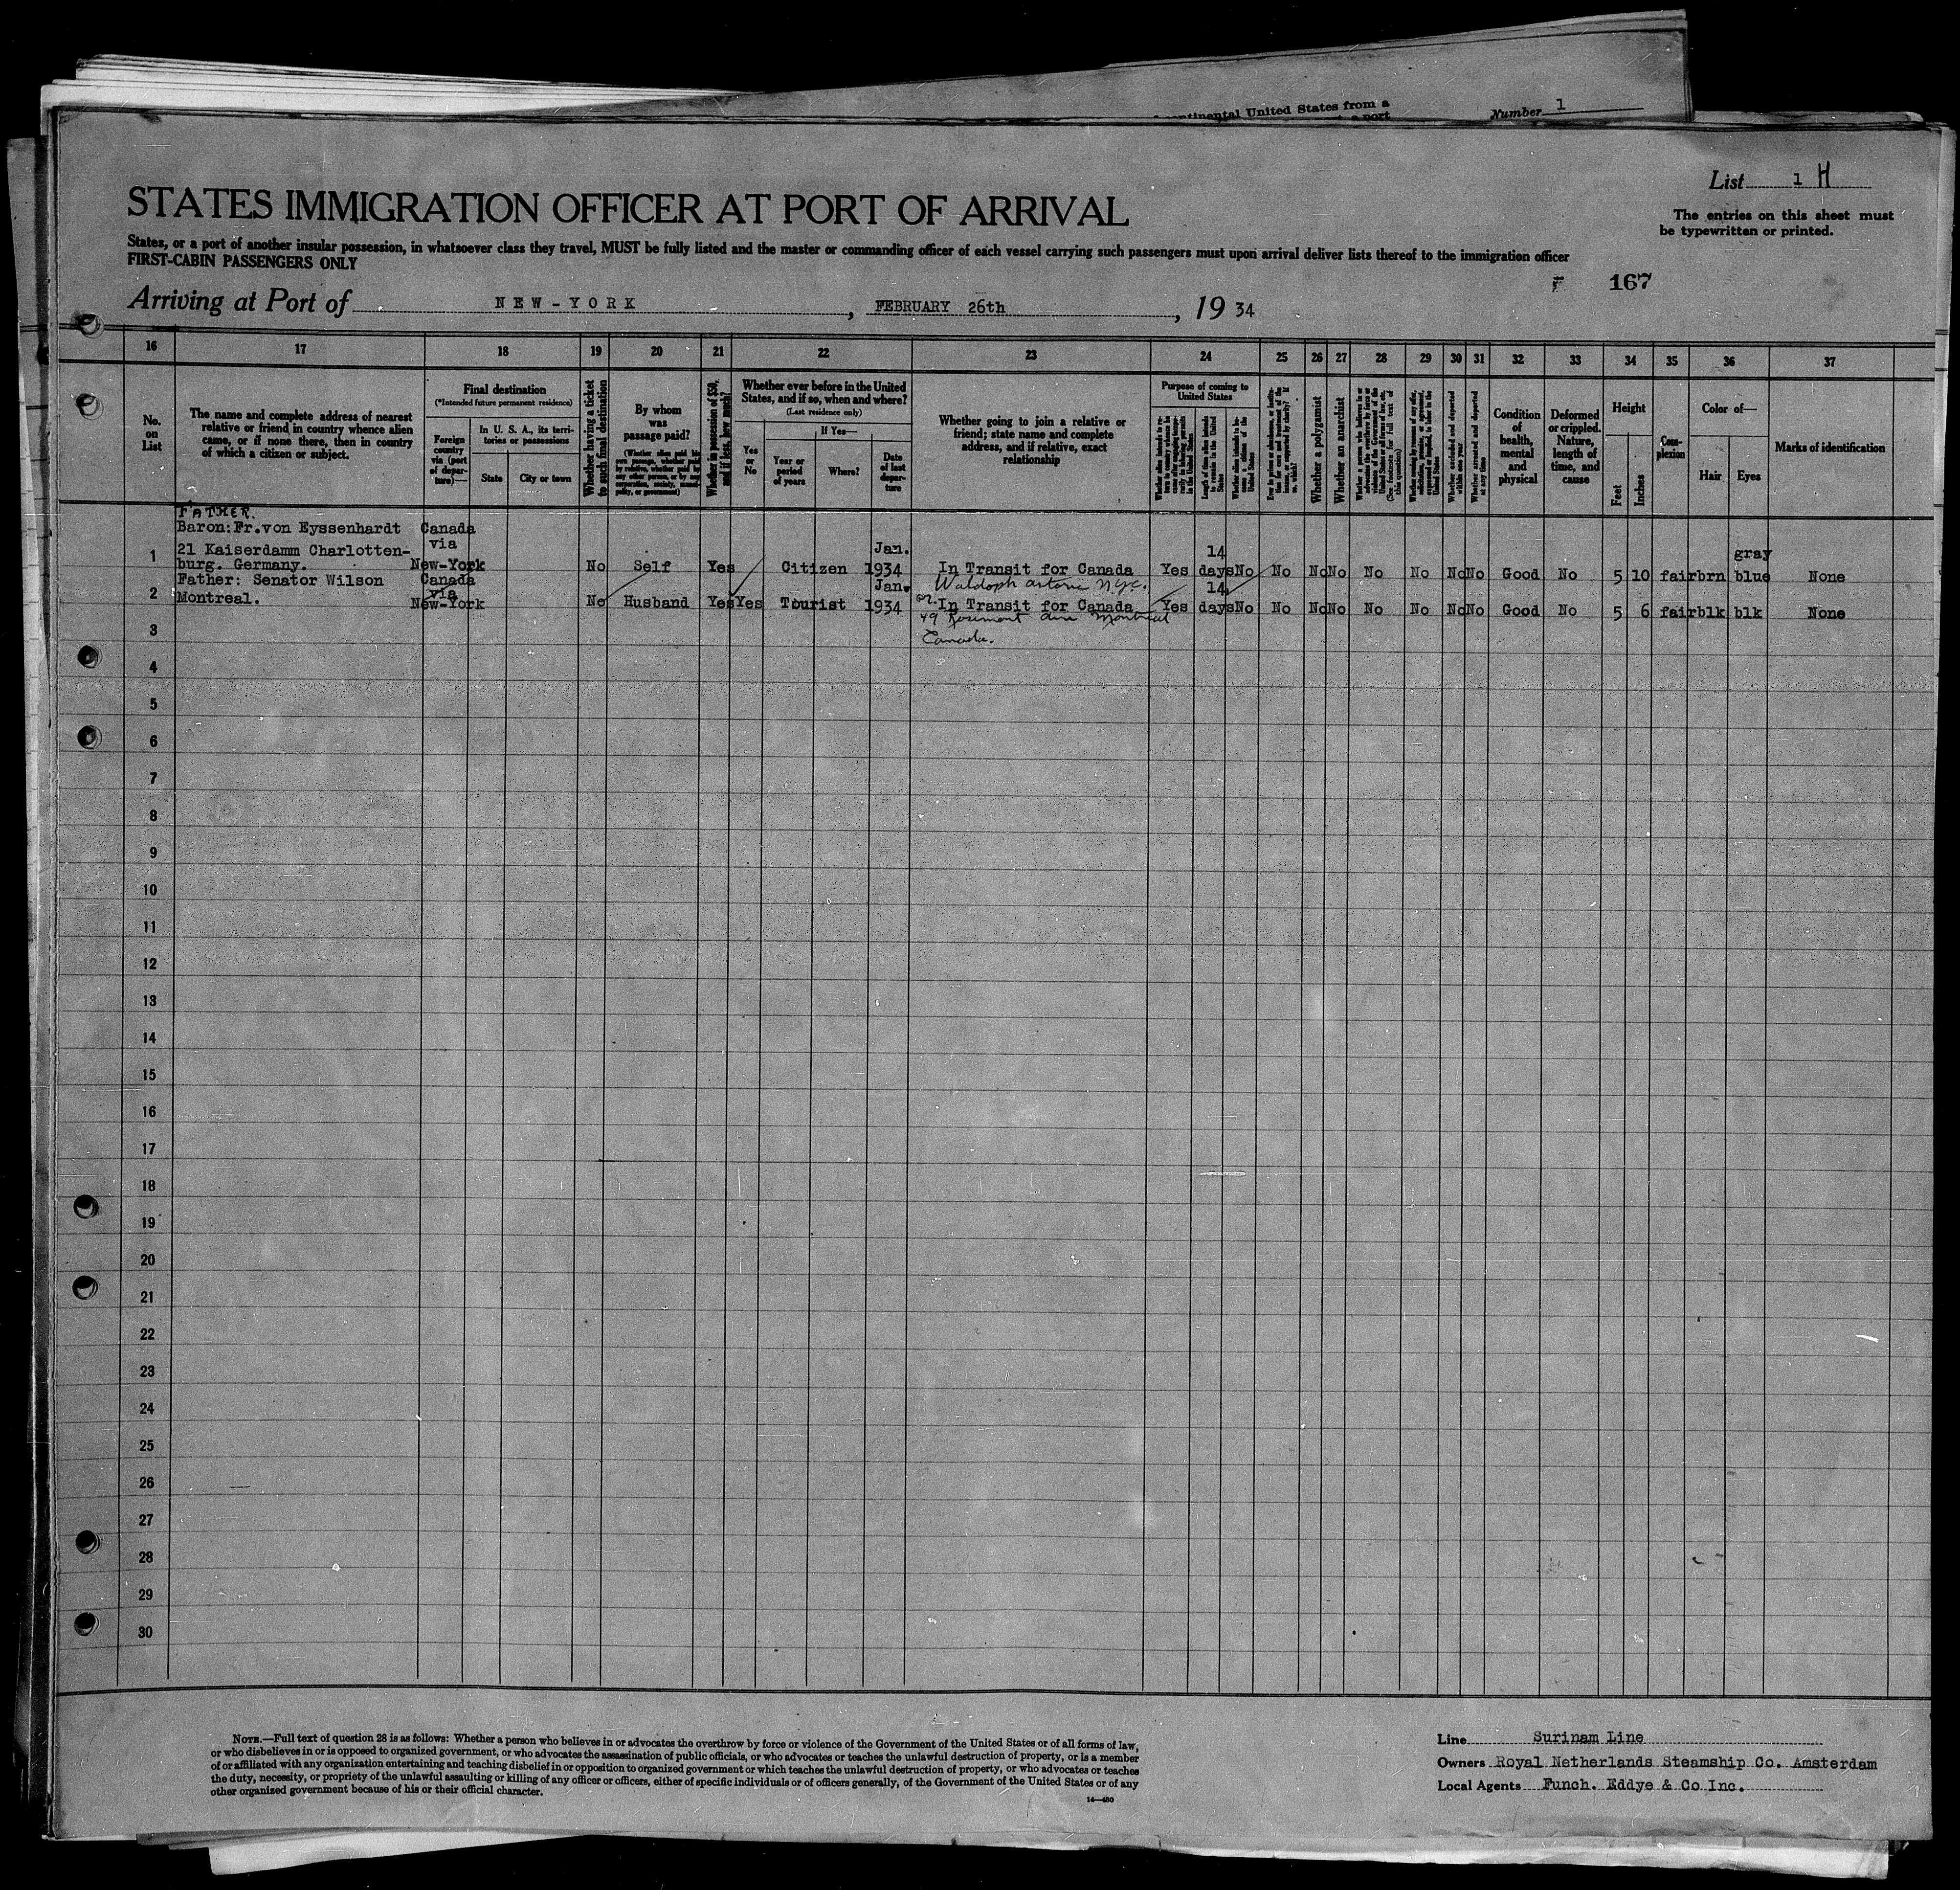 continental United States from a
a port
Number 1
List 1 H
The entries on this sheet must
be typewritten or printed.
STATES IMMIGRATION OFFICER AT PORT OF ARRIVAL
States, or a port of another insular possession, in whatsoever class they travel, MUST be fully listed and the master or commanding officer of each vessel carrying such passengers must upon arrival deliver lists thereof to the immigration officer
FIRST-CABIN PASSENGERS ONLY
167
Arriving at Port of NEW-YORK, FEBRUARY 26th, 19 34
16 17 18 19 20 21 22 23 24 25 26 27 28 29 30 31 32 33 34 35 36 37
No.
on
List
The name and complete address of nearest
relative or friend in country whence alien
came, or if none there, then in country
of which a citizen or subject.
Final destination
(*Intended future permanent residence)
Foreign
country
via (port
of depar-
ture)—
In U. S. A., its terri-
tories or possessions
State
City or town
Whether having a ticket
to such final destination
By whom
was
passage paid?
(Whether alien paid his
own passage, whether paid
by relative, whether paid by
any other person, or by any
corporation, society, munici-
pality, or government)
Whether in possession of $50,
and if less, how much?
Whether ever before in the United
States, and if so, when and where?
(Last residence only)
Yes
or
No
If Yes—
Year or
period
of years
Where?
Date
of last
depar-
ture
Whether going to join a relative or
friend; state name and complete
address, and if relative, exact
relationship
Purpose of coming to
United States
Whether a polygamist
Whether an anarchist
(See footnote for full text of
this question)
Whether excluded and deported
within one year
Whether arrested and deported
at any time
Condition
of
health,
mental
and
physical
Deformed
or crippled.
Nature,
length of
time, and
cause
Height
Feet
Inches
Com-
plexion
Color of—
Hair
Eyes
Marks of identification
FATHER.
Baron: Fr. von Eyssenhardt Canada
via
1 21 Kaiserdamm Charlotten- Jan. 14 gray
burg. Germany. New-York No Self Yes Citizen 1934 In Transit for Canada Yes days No No No No No No No No Good No 5 10 fair brn blue None
Father: Senator Wilson Canada Jan. Waldoph Astoria N.Y.C. 14
2 Montreal. via
New-York No Husband Yes Yes Tourist 1934 or In Transit for Canada Yes days No No No No No No No No Good No 5 6 fair blk blk None
49 Rosemont Ave Montreal
3 Canada.
4
5
6
7
8
9
10
11
12
13
14
15
16
17
18
19
20
21
22
23
24
25
26
27
28
29
30
NOTE.—Full text of question 28 is as follows: Whether a person who believes in or advocates the overthrow by force or violence of the Government of the United States or of all forms of law,
or who disbelieves in or is opposed to organized government, or who advocates the assassination of public officials, or who advocates or teaches the unlawful destruction of property, or is a member
of or affiliated with any organization entertaining and teaching disbelief in or opposition to organized government or which teaches the unlawful destruction of property, or who advocates or teaches
the duty, necessity, or propriety of the unlawful assaulting or killing of any officer or officers, either of specific individuals or of officers generally, of the Government of the United States or of any
other organized government because of his or their official character.
14—480
Line Surinam Line
Owners Royal Netherlands Steamship Co. Amsterdam
Local Agents Funch. Eddye & Co Inc.